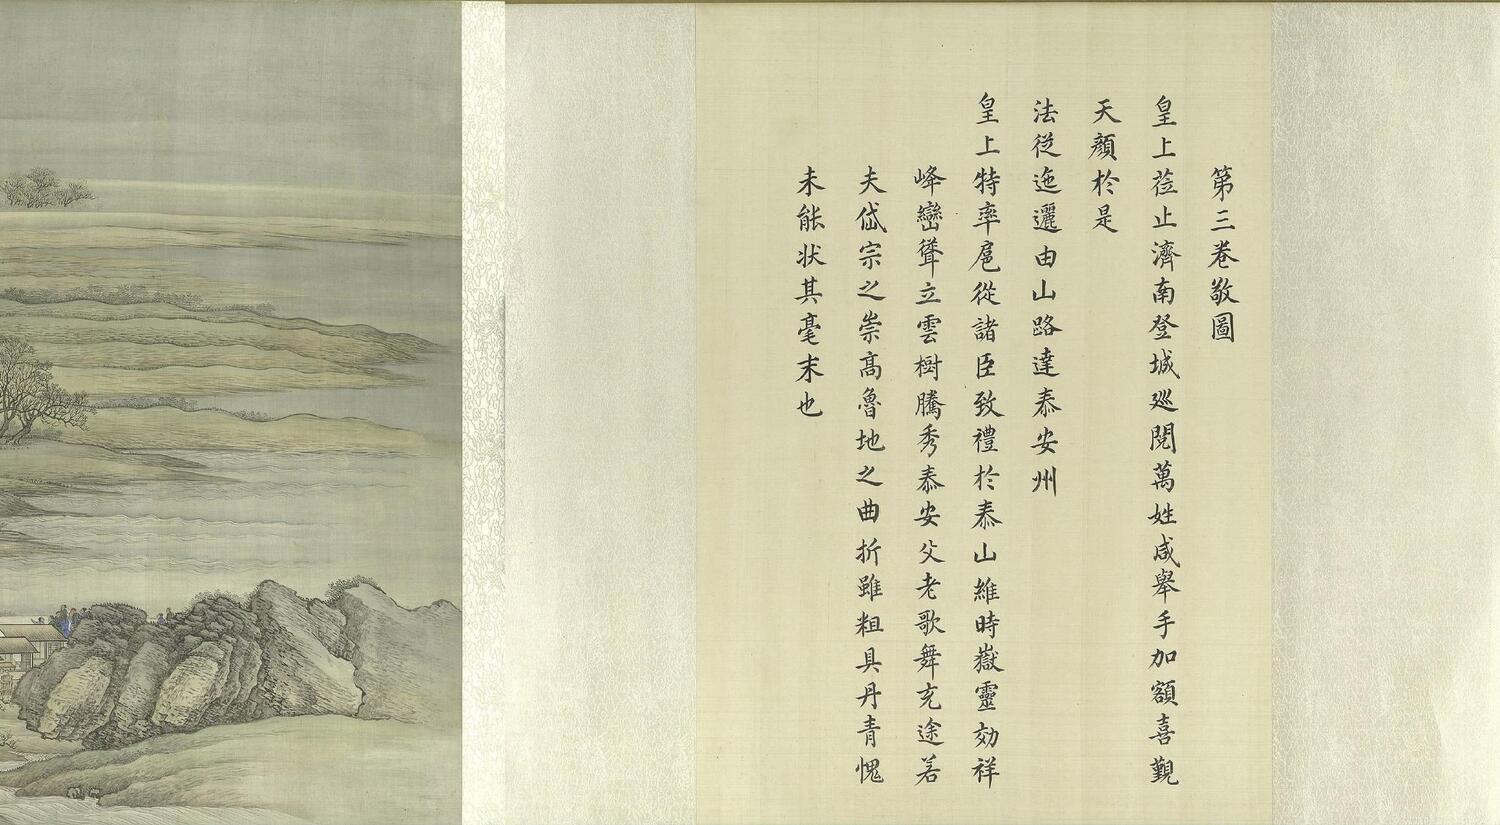 第三卷敬圖
皇上莅止濟南登城廵閱萬姓咸舉手加額喜觀
天顏於是
法從迤邐由山路達泰安州
皇上特率扈從諸臣致禮於泰山維時嶽靈効祥
峰巒聳立雲樹騰秀泰安父老歌舞充途若
夫岱宗之崇髙魯地之曲折雖粗具丹青愧
未能状其毫末也